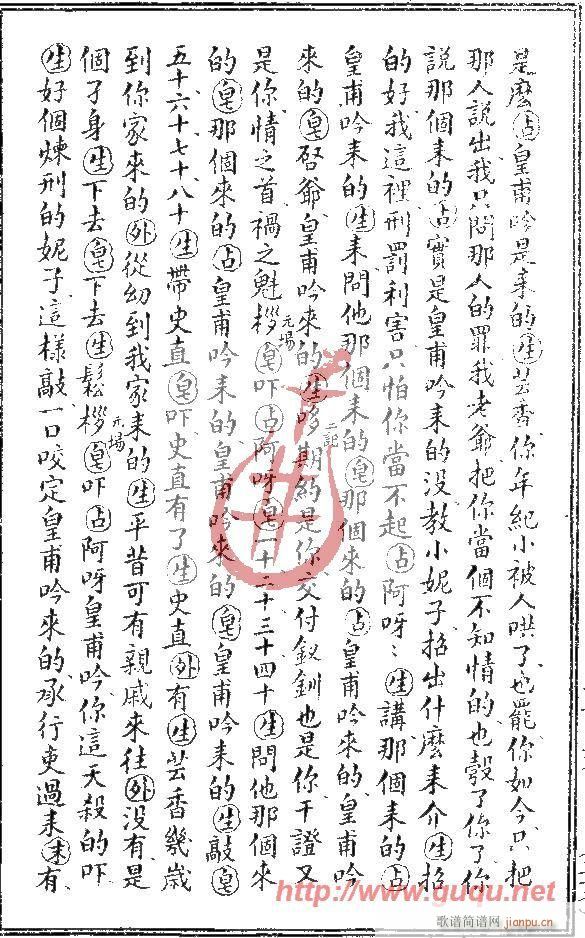 是麽㊂占皇甫吟是来的生芸香你年紀小被人哄了也罷你如今只把
那人説出我只問那人的罪我老爺把你當個不知情的也彀了你了你
説那個来的占實是皇甫吟来的没教小妮子招出什麽来介生招
的好我這裡刑罰利害只怕你當不起占阿呀〻生講那個来的占
皇甫吟来的生来問他那個来的皂那個来的占皇甫吟来的皇甫吟
来的皂啓爺皇甫吟来的生哆期約是你交付釵釧也是你干證又
是你情之首禍之魁桚元場皂吓占阿呀皂一十二十三十四十生問他那個来
的皂那個来的占皇甫吟来的皇甫吟来的皂皇甫吟来的生敲皂
五十六十七十八十生帶史直皂吓史直有了生史直外有生芸香幾歲
到你家来的外從幼到我家来的生平昔可有親戚来往外没有是
個孑身生下去皂下去生鬆桚元場皂吓占阿呀皇甫吟你這天殺的吓
生好個煉刑的妮子這樣敲一口咬定皇甫吟来的承行吏過来末有
二記
http://www.guqu.net
歌谱简谱网
jianpu.cn